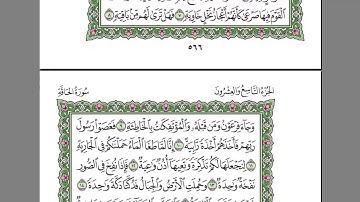 ٱلۡقَوۡمَ فِيهَا صَرۡعَىٰ كَأَنَّهُمۡ أَعۡجَازُ نَخۡلٍ خَاوِيَةٖ ٧ فَهَلۡ تَرَىٰ لَهُم مِّنۢ بَاقِيَةٖ ٨
٥٦٦
الجزء التاسع والعشرون
سورة الحاقة
وَجَآءَ فِرۡعَوۡنُ وَمَن قَبۡلَهُۥ وَٱلۡمُؤۡتَفِكَٰتُ بِٱلۡخَاطِئَةِ ٩ فَعَصَوۡاْ رَسُولَ
رَبِّهِمۡ فَأَخَذَهُمۡ أَخۡذَةٗ رَّابِيَةً ١٠ إِنَّا لَمَّا طَغَا ٱلۡمَآءُ حَمَلۡنَٰكُمۡ فِي ٱلۡجَارِيَةِ
١١ لِنَجۡعَلَهَا لَكُمۡ تَذۡكِرَةٗ وَتَعِيَهَآ أُذُنٞ وَٰعِيَةٞ ١٢ فَإِذَا نُفِخَ فِي ٱلصُّورِ
نَفۡخَةٞ وَٰحِدَةٞ ١٣ وَحُمِلَتِ ٱلۡأَرۡضُ وَٱلۡجِبَالُ فَدُكَّتَا دَكَّةٗ وَٰحِدَةٗ ١٤